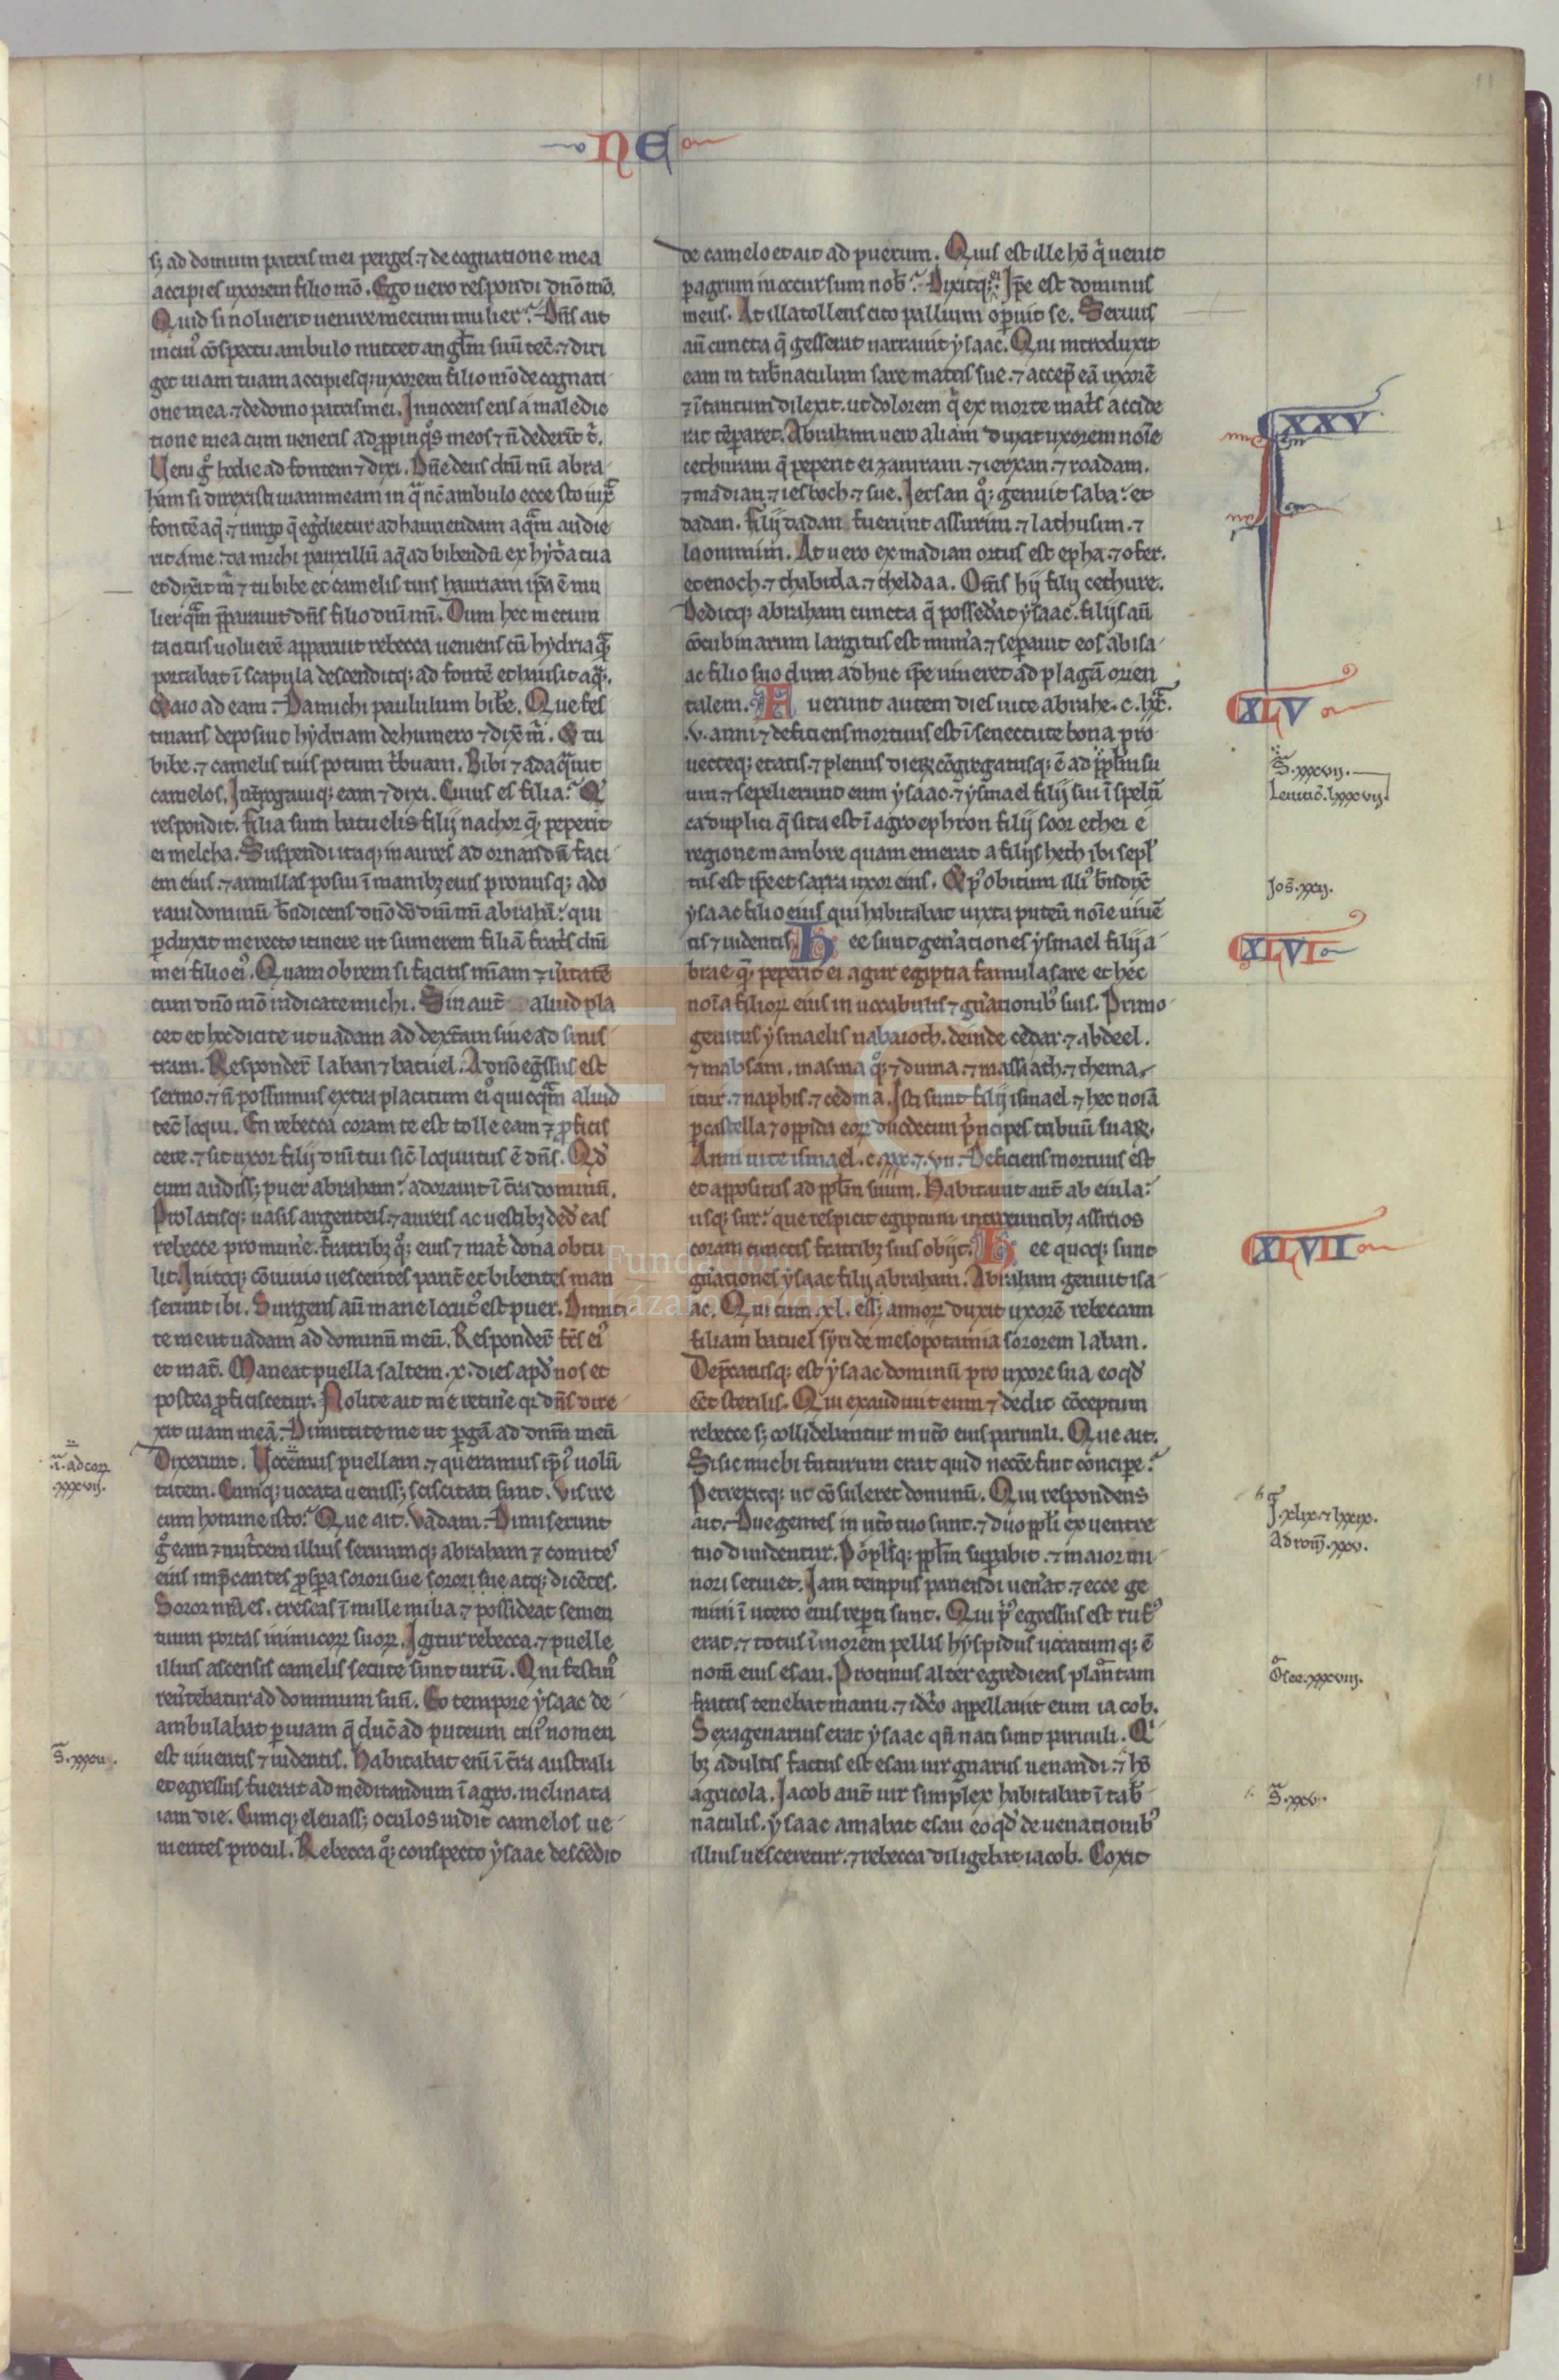 11
NE
sꝫ ad domum patris mei perges. ⁊ de cognatione mea
accipies uxorem filio mō. Ego uero respondi dn̄o mō.
Quid si noluerit uenire mecum mulier? Dn̄s ait
in cuiꝰ cōspectu ambulo mittet angl̄m suū tec̄. ⁊ diri
get uiam tuam accipiesqꝫ uxorem filio m̄o de cognati
one mea. ⁊ de domo patris mei. Innocens eris a maledic
tione mea cum ueneris ad ꝓpinqͦs meos ⁊ n̄ dederīt t̄.
Ueni gͦ hodie ad fontem ⁊ dixi. Dn̄e deus dn̄i m̄i abra
ham si direxisti uiam meam in qͣ nc̄ ambulo ecce sto iuxͣ
fontē aq̄. ⁊ uirgo q̄ eḡdietur ad hauriendam aqͣm audie
rit a me. da michi pauxillū aq̄ ad bibendū ex hẏdͥa tua
et dix̄it m̄ ⁊ tu bibe et camelis tuis hauriam ip̄a ē mu
lier qͣm p̄parauit dn̄s filio dn̄i m̄i. Dum hec mecum
tacitus uoluerē apparuit rebecca ueniens cū hẏdria qͣ
portabat ī scapula descenditqꝫ ad fontē et hausit aqͣ.
Et aio ad eam. Da michi paululum bib̄e. Que fes
tinans deposuit hẏdriam de humero ⁊ dix̄ m̄. Et tu
bibe. ⁊ camelis tuis potum tͥbuam. Bibi ⁊ adaqͣuit
camelos. Int̄rogauiqꝫ eam ⁊ dixi. Cuius es filia? Q̄
respondit. filia sum batuelis filij nachor q̄ peperit
ei melcha. Suspendi itaqꝫ inaures ad ornandū faci
em eius. ⁊ armillas posui ī manibꝫ eius pronusqꝫ ado
raui dominū b̄ndicens dn̄o dō dn̄i m̄i abrahā. qui
ꝑduxit me recto itinere ut sumerem filiā frat̄s dn̄i
mei filio eiꝰ. Quam obrem si facitis m̄iam ⁊ ūitatē
cum dn̄o mō indicate michi. Sin aut̄ aliud pla
cet et hoc dicite ut uadam ad dext̄am siue ad sinis
tram. Responder̄ laban ⁊ batuel. A dn̄o eḡssus est
sermo. ⁊ n̄ possumus extra placitum eiꝰ quicqͣm aliud
tec̄ loqui. En rebecca coram te est tolle eam ⁊ ꝓficis
cere. ⁊ sit uxor filij dn̄i tui sic̄ loquutus ē dn̄s. Qd̄
cum audissꝫ puer abraham. adorauit ī t̄ra dominū.
Prolatisqꝫ uasis argenteis. ⁊ aureis ac uestibꝫ ded̄ eas
rebecce pro mun̄e. fratribꝫ qͦqꝫ eius ⁊ mat̄ dona obtu
lit. Initoqꝫ cōuiuio uescentes parit̄ et bibentes man
serunt ibi. Surgens aū mane locutꝰ est puer. Dimitti
te me ut uadam ad dominū meū. Responder̄ fr̄s eiꝰ
et mat̄. Maneat puella saltem .x. dies apd̄ nos et
postea ꝓficiscetur. Nolite ait me retin̄e qͥ dn̄s dire
xit uiam meā. Dimittite me ut ꝑgā ad dnm̄ meū
Dixerunt. Uocēmus puellam. ⁊ queramus ip̄iꝰ uolū
tatem. Cumqꝫ uocata uenissꝫ sciscitati sunt. Vis ire
cum homine isto? Que ait. Vadam. Dimiserunt
gͦ eam ⁊ nut̄cem illius seruumqꝫ abraham ⁊ comites
eius imp̄cantes ꝓspera sorori sue sorori sue atqꝫ dicētes.
Soror nr̄a es. crescas ī mille milia. ⁊ possideat semen
tuum portas inimicoꝝ suoꝝ. Igitur rebecca. ⁊ puelle
illius ascensis camelis secute sunt uirū. Qui festinꝰ
reūtebatur ad dominum suū. Eo tempore ẏsaac de
ambulabat ꝑ uiam q̄ duc̄ ad puteum cuiꝰ nomen
est uiuentis ⁊ uidentis. Habitabat enī ī t̄ra australi
et egressus fuerat ad meditandum ī agro. inclinata
iam die. Cumqꝫ eleuassꝫ oculos uidit camelos ue
nientes procul. Rebecca qͦqꝫ conspecto ẏsaac descēdit
de camelo et ait ad puerum. Quis est ille hō qͥ uenit
ꝑ agrum in occursum nob̄? Dixitqꝫ ei. Ip̄e est dominus
meus. At illa tollens cito pallium oꝑuit se. Seruus
aū cuncta q̄ gesserat narrauit ẏsaac. Qui introduxit
eam in tab̄naculum sare matris sue. ⁊ accep̄ eā uxorē
⁊ ī tantum dilexit. ut dolorem qͥ ex morte mat̄s accide
rat tēperaret. Abraham uero aliam duxit uxorem noīe
cethuram q̄ peperit ei zamram. ⁊ ierxan. ⁊ roadam.
⁊ madian. ⁊ iesboch. ⁊ sue. Jersan qͦqꝫ genuit saba. et
dadan. filij dadan fuerunt assurim. ⁊ lathusim. ⁊
laommim. At uero ex madian ortus est epha. ⁊ ofer.
et enoch. ⁊ thabida. ⁊ cheldaa. Om̄s hij filij cethure.
Deditqꝫ abraham cuncta q̄ possed̄at ẏsaac. filijs aū
cōcubinarum largitus est mun̄a. ⁊ seꝑauit eos ab isa
ac filio suo dum ad huc ip̄e uiueret ad plagā orien
talem. Fuerunt autem dies uite abrahe .c. lxͣ.
.v. anni ⁊ deficiens mortuus est ī senectute bona pro
uecteqꝫ etatis. ⁊ plenus dieꝝ cōgregatusqꝫ ē ad pp̄lm su
um. ⁊ sepelierunt eum ẏsaac. ⁊ ẏsmael filij sui ī spelū
ca duplici q̄ sita est ī agro ephron filij soor ethei e
regione mambre quam emerat a filijs heth ibi sepl̄
tus est ip̄e et sarra uxor eius. Et pꝰ obitum illiꝰ b̄ndix̄
ẏsaac filio eius qui habitabat iuxta puteū noīe uiuē
tis ⁊ uidentis. Hee sunt gen̄ationes ẏsmael filij a
brae q̄ peperit ei agar egiptia famula sare et hec
noīa filioꝝ eius in uocabulis ⁊ gn̄ationibꝰ suis. Primo
genitus ẏsmaelis nabaioth. deinde cedar. ⁊ abdeel.
⁊ mabsam. masma qͦqꝫ ⁊ duma. ⁊ massa ath. ⁊ thema.
itur. ⁊ naphis. ⁊ cedma. Isti sunt filij ismael. ⁊ hec noīa
ꝑ castella ⁊ oppida eoꝝ duodecim p̄ncipes tribuū suaꝝ.
Anni uite ismael .c. xxx. ⁊ .vii. Deficiens mortuus est
et appositus ad pp̄lm suum. Habitauit aut̄ ab euila.
usqꝫ sur. que respicit egiptum introeuntibꝫ assirios
coram cunctis fratribꝫ suis obijt. Hee quoqꝫ sunt
gn̄ationes ẏsaac filij abraham. Abraham genuit isa
ac. Qui cum .xl. essꝫ annoꝝ duxit uxorē rebeccam
filiam batuel sẏri de mesopotamia sororem laban.
Dep̄catusqꝫ est ẏsaac dominū pro uxore sua eo qd̄
ēet sterilis. Qui exaudiuit eum ⁊ dedit cōceptum
rebecce sꝫ collidebantur in ut̄o eius paruuli. Que ait.
Si sic michi futurum erat quid necē̄ fuit concipe?
Perrexitqꝫ ut cōsuleret dominū. Qui respondens
ait. Due gentes in ut̄o tuo sunt. ⁊ duo pp̄li ex uentre
tuo diuidentur. Popl̄qꝫ pp̄lm suꝑabit. ⁊ maior mi
nori seruiet. Iam tempus pariendi uen̄at. ⁊ ecce ge
mini ī utero eius reꝑti sunt. Qui pͥ egressus est rufꝰ
erat. ⁊ totus ī morem pellis hẏspidus uocatumqꝫ ē
nom̄ eius esau. Protinus alter egrediens plantam
fratris tenebat manu. ⁊ idc̄o appellauit eum iacob.
Sexagenarius erat ẏsaac qn̄ nati sunt paruuli. Qͥ
bꝫ adultis factus est esau uir gnarus uenandi. ⁊ hō
agricola. Jacob aut̄ uir simplex habitabat ī tab̄
naculis. ẏsaac amabat esau eo qd̄ de uenationibꝰ
illius uesceretur. ⁊ rebecca diligebat iacob. Coxit
XXV
XLV
S̄. xxxvij.
Leuitic̄. lxxxvij.
Jos̄. xxij.
XLVI
XLVII
ad cor.
.xxxvij.
J. xlix. ⁊ lxxix.
Ad rom̄. xxv.
S̄. xxxv.
Osee. xxxviij.
S̄. xxv.
FLG
Fundación
Lázaro Galdiano